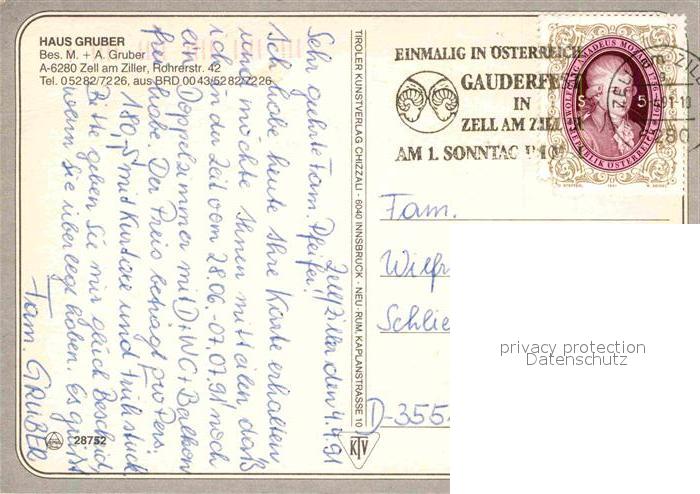 HAUS GRUBER
Bes. M. + A. Gruber
A-6280 Zell am Ziller, Rohrerstr. 42
Tel. 05282/7226, aus BRD 0043/5282/7226
Zell/Ziller, den 4.4.91
Sehr geehrte Fam. Pfeifer.
Ich habe heute Ihre Karte erhalten
und möchte Ihnen mitteilen, daß
ich in der Zeit vom 28.06.-07.07.91 noch
ein Doppelzimmer mit D+WC+Balkon
frei habe. Der Preis beträgt pro Pers.
180,- S mit Kurtaxe und Frühstück.
Bitte geben Sie mir gleich Bescheid,
wenn Sie überlegt haben. Es grüßt
Fam. GRUBER
28752
TIROLER KUNSTVERLAG CHIZZALI · 6040 INNSBRUCK - NEU-RUM, KAPLANSTRASSE 10
KTV
EINMALIG IN ÖSTERREICH
GAUDERFE
IN
ZELL AM ZILL
AM 1. SONNTAG IM
WOLFGANG AMADEUS MOZART 1756-1791
S 5
REPUBLIK ÖSTERREICH
1991
Fam.
Wilfr
Schlie
D-355
privacy protection
Datenschutz